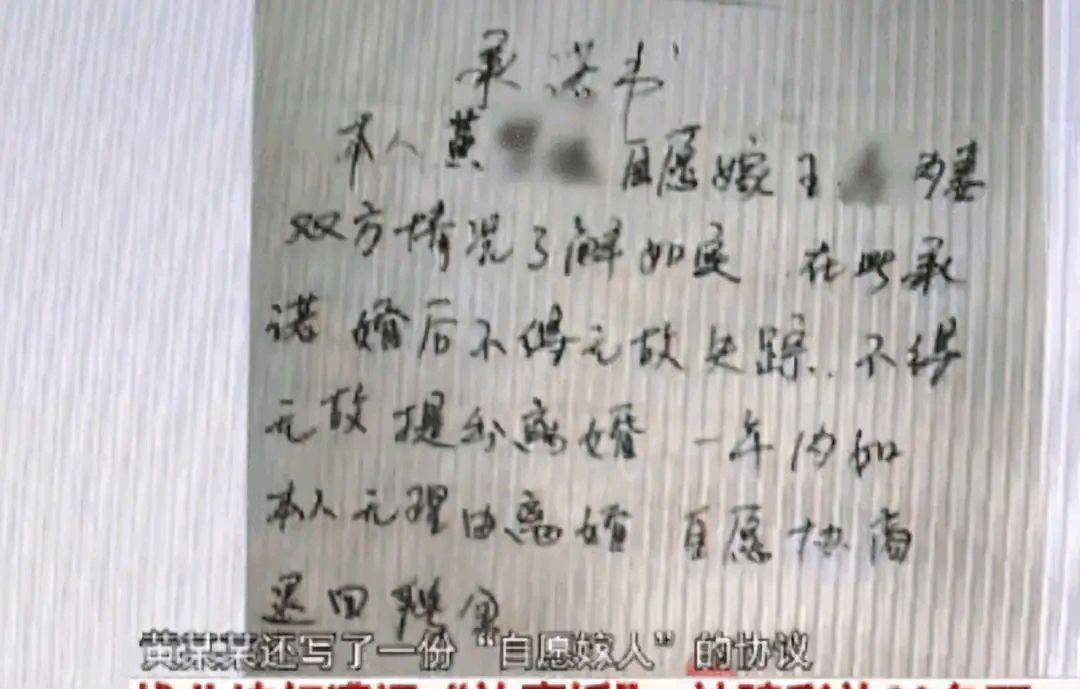 承诺书
本人黄 自愿嫁于 为妻
双方情况了解如实 在此承
诺 婚后不得无故失踪.不得
无故提出离婚 一年内如
本人无理由离婚 自愿协商
退回聘金
黄某某还写了一份“自愿嫁人”的协议